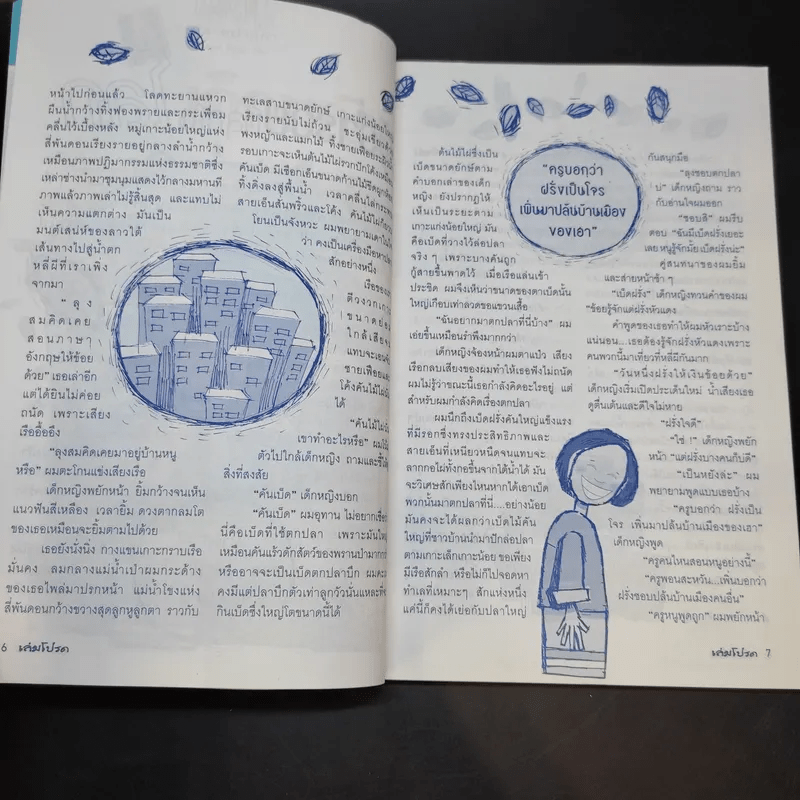 หน้าไปก่อนแล้ว โลดทะยานแหวก
ผืนน้ำกว้างทิ้งฟองพรายและกระเพื่อม
คลื่นไว้เบื้องหลัง หมู่เกาะน้อยใหญ่แห่ง
สี่พันดอนเรียงรายอยู่กลางลำน้ำกว้าง
เหมือนภาพปฏิมากรรมแห่งธรรมชาติซึ่ง
เหล่าช่างนำมาชุมนุมแสดงไว้กลางมหานที
ภาพแล้วภาพเล่าไม่รู้สิ้นสุด และแทบไม่
เห็นความแตกต่าง มันเป็น
มนต์เสน่ห์ของลาวใต้
เส้นทางไปสู่น้ำตก
หลี่ผีที่เราเพิ่ง
จากมา
"ลุง
สมคิดเคย
สอนภาษา
อังกฤษให้ข้อย
ด้วย" เธอเล่าอีก
แต่ได้ยินไม่ค่อย
ถนัด เพราะเสียง
เรืออื้ออึง
"ลุงสมคิดเคยมาอยู่บ้านหนู
หรือ" ผมตะโกนแข่งเสียงเรือ
เด็กหญิงพยักหน้า ยิ้มกว้างจนเห็น
แนวฟันสี่เหลือง เวลายิ้ม ดวงตากลมโต
ของเธอเหมือนจะยิ้มตามไปด้วย
เธอยังนั่งนิ่ง กางแขนเกาะกราบเรือ
มั่นคง ลมกลางแม่น้ำเป่าผมกระด้าง
ของเธอไพล่มาปรกหน้า แม่น้ำโขงแห่ง
สี่พันดอนกว้างขวางสุดลูกหูลูกตา ราวกับ
6 หล่มโปรด
ทะเลสาบขนาดยักษ์ เกาะแก่งน้อย
เรียงรายนับไม่ถ้วน ชะอุ่มเขียว
พงหญ้าและแมกไม้ ทิ้งชายเฟือย
รอบเกาะจะเห็นต้นไม้ไผ่รวกปักโค้ง
คันเบ็ด มีเชือกเอ็นขนาดก้านไม้ขีดผูก
ทิ้งดิ่งลงสู่พื้นน้ำ เวลาคลื่นไล่
สายเอ็นสั่นพริ้วและโค้ง คันไม้ไผ่
โยนเป็นจังหวะ ผมพยายามเดา
ว่า คงเป็นเครื่องมือหาปลา
สักอย่างหนึ่ง
เรือของ
ตีวงวกเ
ขนาดย่อ
ใกล้เสีย
แทบจะเอน
ชายเฟือย
โค้งคันไม้ไผ่
ได้
"คันไม้ไผ่
เขาทำอะไรหรือ" ผม
ตัวไปใกล้เด็กหญิง ถามและชี้
สิ่งที่สงสัย
"คันเบ็ด" เด็กหญิงบอก
"คันเบ็ด" ผมอุทาน ไม่อยากเชื่อ
นี่คือเบ็ดที่ใช้ตกปลา เพราะมันใหญ่
เหมือนคันแร้วดักสัตว์ของพรานป่ามากกว่า
หรืออาจจะเป็นเบ็ดตกปลาบึก ผมคะเน
คงมีแต่ปลาบึกตัวเท่าลูกวัวนั่นแหละที่จะ
กินเบ็ดซึ่งใหญ่โตขนาดนี้ได้
ต้นไม้ไผ่ซึ่งเป็น
เบ็ดขนาดยักษ์ตาม
คำบอกเล่าของเด็ก
หญิง ยังปรากฏให้
เห็นเป็นระยะตาม
เกาะแก่งน้อยใหญ่ มัน
คือเบ็ดที่วางไว้ล่อปลา
จริง ๆ เพราะบางคันถูก
กู้สายขึ้นพาดไว้ เมื่อเรือแล่นเข้า
ประชิด ผมจึงเห็นว่าขนาดของตาเบ็ดนั้น
ใหญ่เกือบเท่าลวดขอแขวนเสื้อ
"ฉันอยากมาตกปลาที่นี่บ้าง" ผม
เอ่ยขึ้นเหมือนรำพึงมากกว่า
เด็กหญิงจ้องหน้าผมตาแป๋ว เสียง
เรือกลบเสียงของผมทำให้เธอฟังไม่ถนัด
ผมไม่รู้ว่าขณะนี้เธอกำลังคิดอะไรอยู่ แต่
สำหรับผมกำลังคิดเรื่องตกปลา
ผมนึกถึงเบ็ดฝรั่งคันใหญ่แข็งแรง
ที่มีรอกซึ่งทรงประสิทธิภาพและ
สายเอ็นที่เหนียวหนืดจนแทบจะ
ลากกอไผ่ทั้งกอขึ้นจากใต้น้ำได้ มัน
จะวิเศษสักเพียงไหนหากได้เอาเบ็ด
พวกนั้นมาตกปลาที่นี่...อย่างน้อย
มันคงจะได้ผลกว่าเบ็ดไม้คัน
ใหญ่ที่ชาวบ้านนำมาปักล่อปลา
ตามเกาะเล็กเกาะน้อย ขอเพียง
มีเรือสักลำ หรือไม่ก็ไปจอดหา
ทำเลที่เหมาะๆ สักแห่งหนึ่ง
แค่นี้ก็คงได้เย่อกับปลาใหญ่
"ครูบอกว่า
ฝรั่งเป็นโจร
เพิ่นมาปล้นบ้านเมือง
ของเอา"
กันสนุกมือ
"ลุงชอบตกปลา
บ่" เด็กหญิงถาม ราว
กับอ่านใจผมออก
"ชอบสิ" ผมรีบ
ตอบ "ฉันมีเบ็ดฝรั่งเยอะ
เลย หนูรู้จักมั้ย เบ็ดฝรั่งน่ะ"
คู่สนทนาของผมยิ้ม
และส่ายหน้าช้า ๆ
"เบ็ดฝรั่ง" เด็กหญิงทวนคำของผม
"ข้อยรู้จักแต่ฝรั่งหัวแดง
คำพูดของเธอทำให้ผมหัวเราะบ้าง
แน่นอน...เธอต้องรู้จักฝรั่งหัวแดงเพราะ
คนพวกนี้มาเที่ยวที่หลี่ผีกันมาก
"วันหนึ่งฝรั่งให้เงินข้อยด้วย"
เด็กหญิงเริ่มเปิดประเด็นใหม่ น้ำเสียงเธอ
ดูตื่นเต้นและดีใจไม่หาย
"ฝรั่งใจดี"
"ใช่ !" เด็กหญิงพยัก
หน้า "แต่ฝรั่งบางคนก็บ่ดี"
"เป็นหยังล่ะ" ผม
พยายามพูดแบบเธอบ้าง
"ครูบอกว่า ฝรั่งเป็น
โจร เพิ่นมาปล้นบ้านเมืองของเฮา"
เด็กหญิงพูด
"ครูคนไหนสอนหนูอย่างนี้"
"ครูพอนสะหวัน...เพิ่นบอกว่า
ฝรั่งชอบปล้นบ้านเมืองคนอื่น"
"ครูหนูพูดถูก" ผมพยักหน้า
หล่มโปรด 7